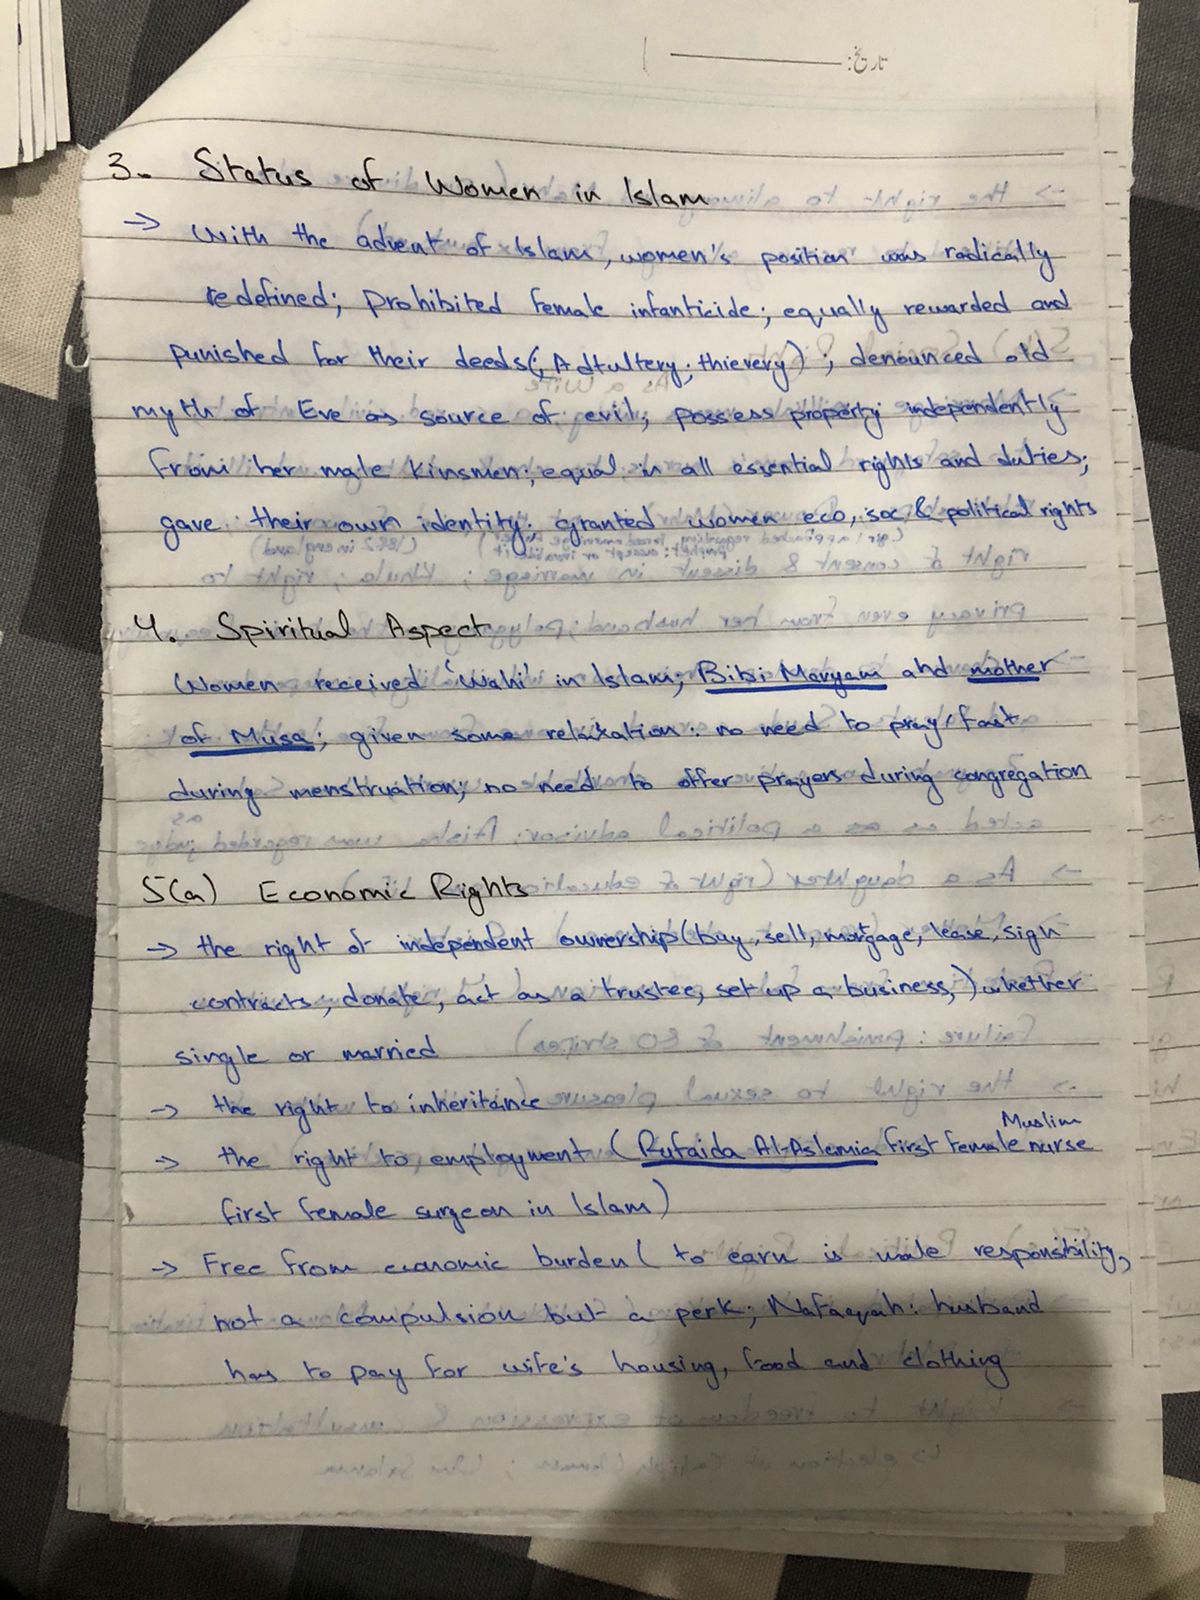 تاریخ:
3. Status of Women in Islam
→ With the advent of Islam, women's position was radically
redefined; prohibited female infanticide; equally rewarded and
punished for their deeds(; Adtultery; thievery); denounced old
myth of Eve as source of evil; possess property independently
from her male kinsmen; equal in all essential rights and duties;
gave their own identity; granted women eco, soc & political rights
4. Spiritual Aspect
Women received 'Wahi' in Islam; Bibi Maryam and mother
of Musa; given some relaxation: no need to pray/fast
during menstruation; no need to offer prayers during congregation
5(a) Economic Rights
→ the right of independent ownership (buy, sell, mortgage, lease, sign
contracts, donate, act as a trustee, set up a business,) whether
single or married
→ the right to inheritance
Muslim
→ the right to employment (Rufaida Al-Aslamia first female nurse
first female surgeon in Islam)
→ Free from economic burden ( to earn is male responsibility,
not a compulsion but a perk; Nafaqah: husband
has to pay for wife's housing, food and clothing